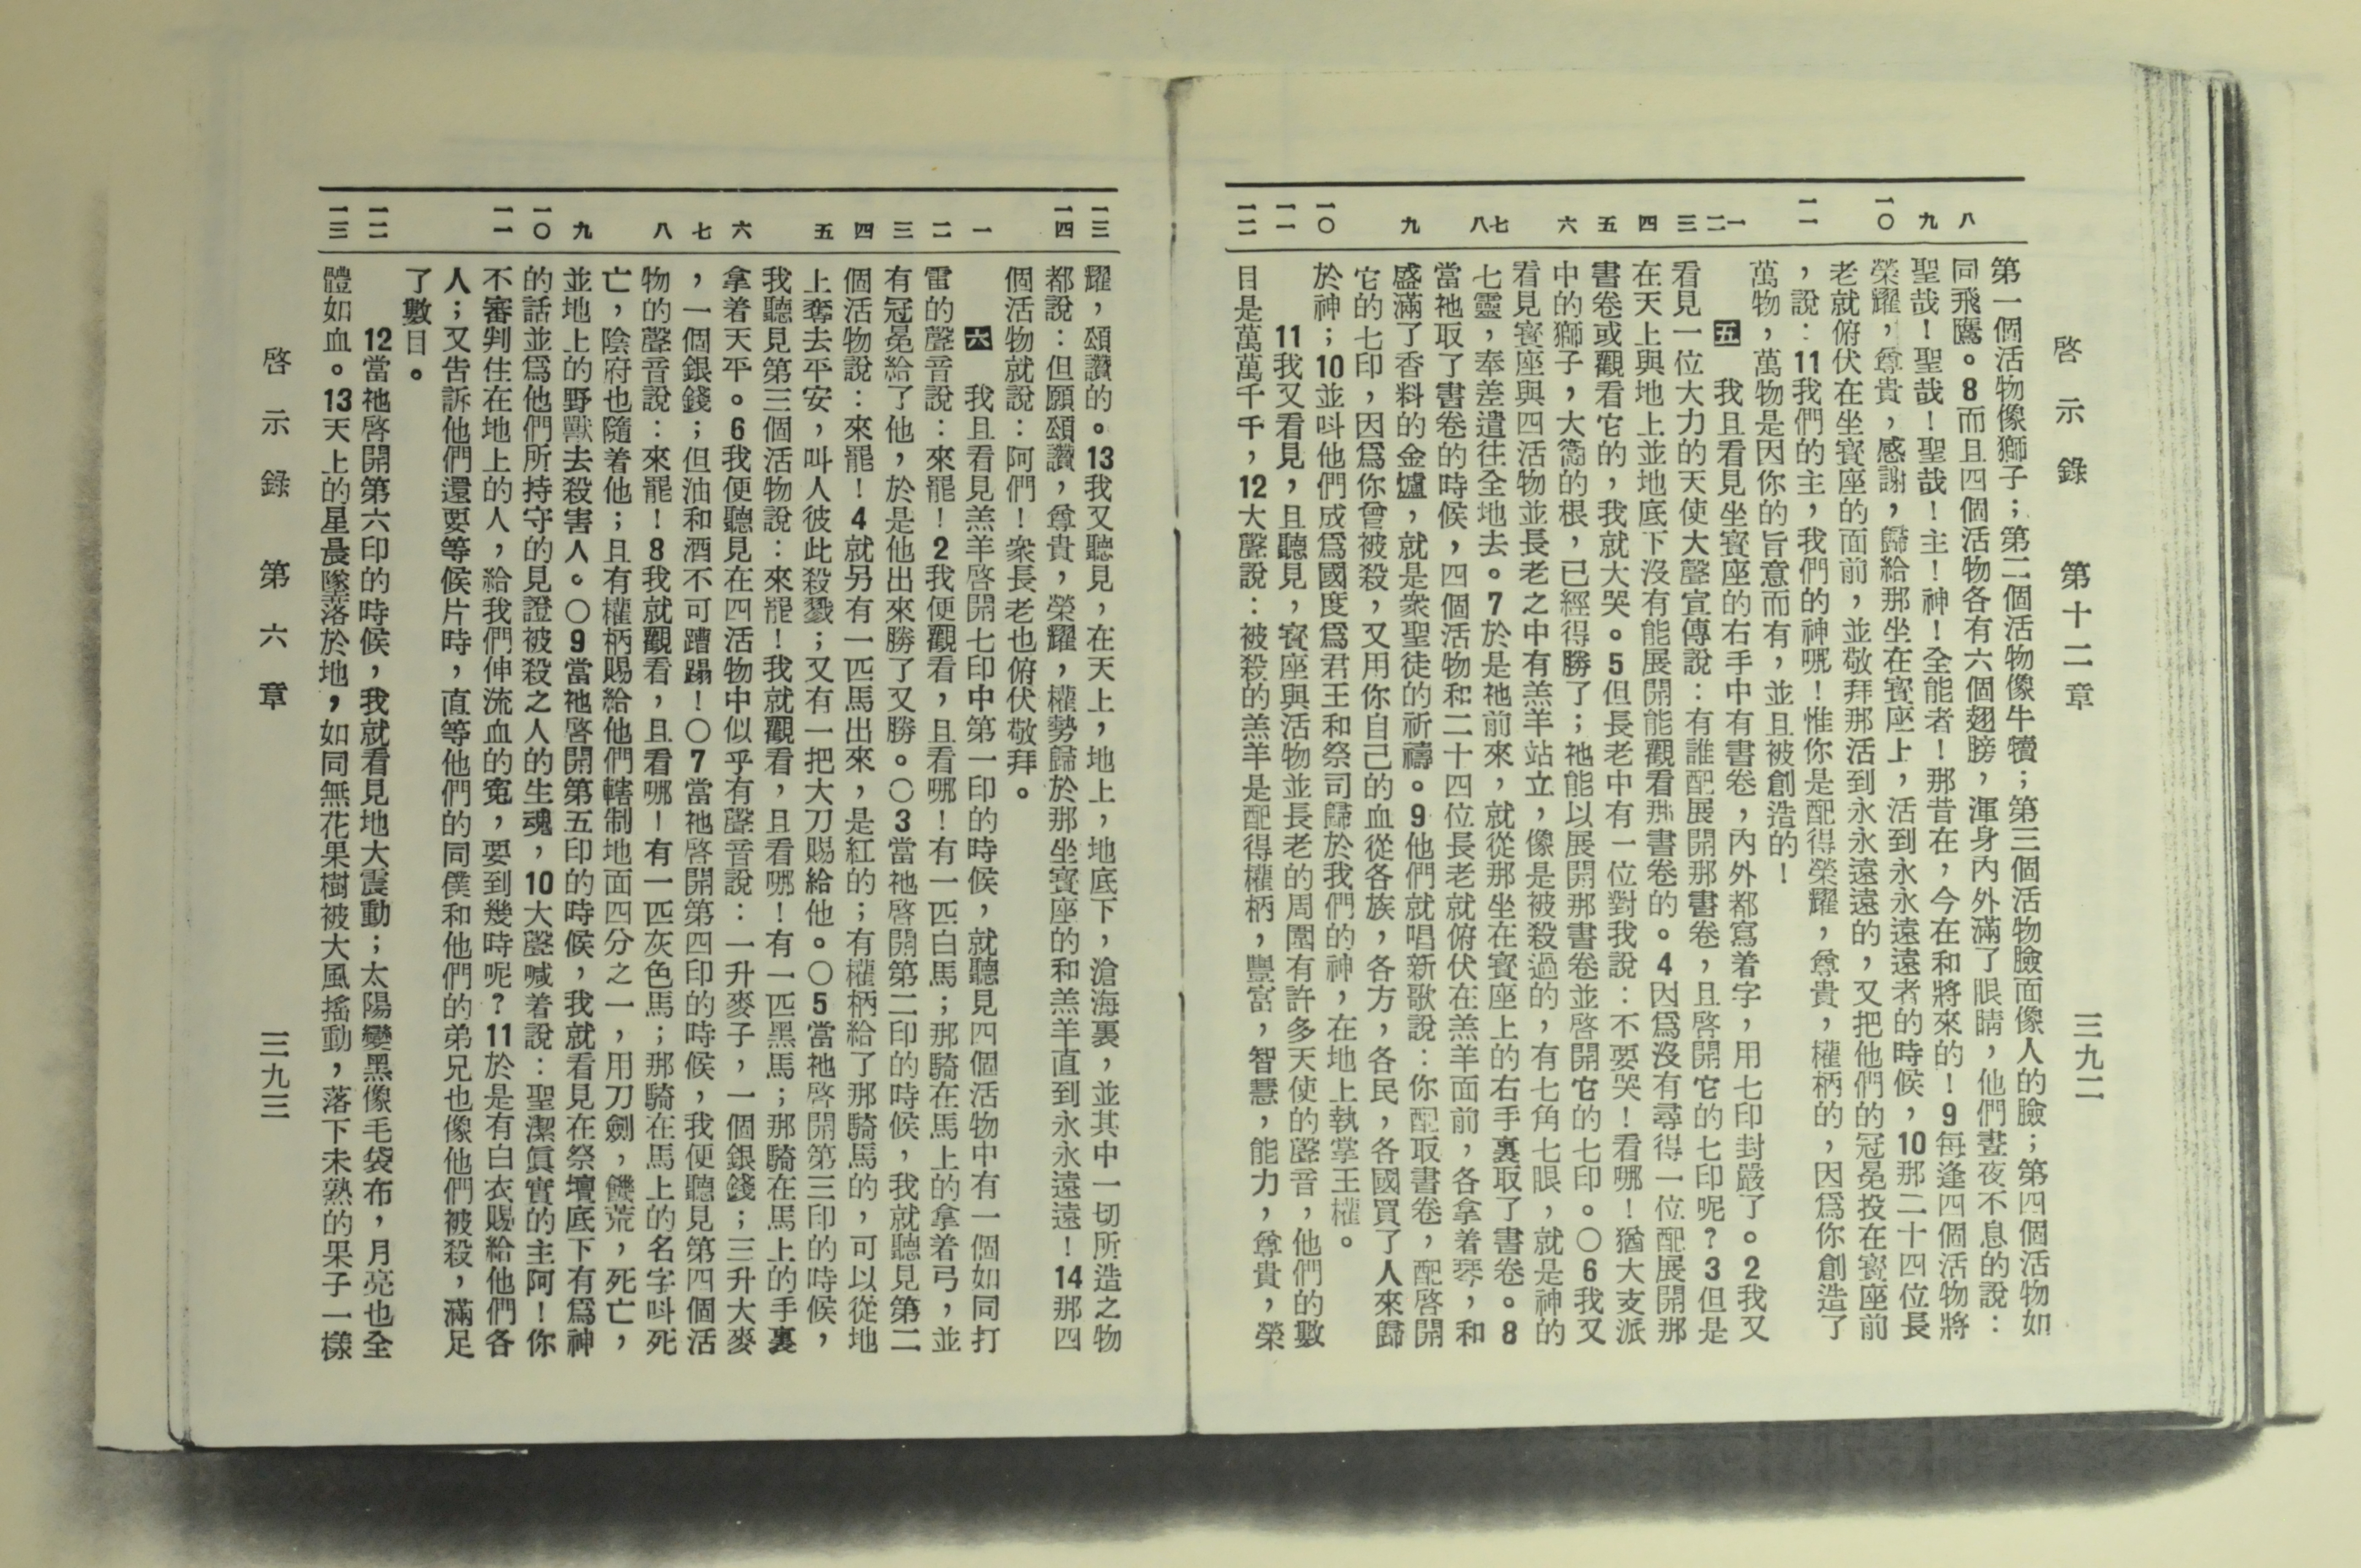 啓示錄 第十二章 三九二
八 九 一〇 一一 一 二 三 四 五 六 七 八 九 一〇 一一 一二
第一個活物像獅子；第二個活物像牛犢；第三個活物臉面像人的臉；第四個活物如
同飛鷹。8而且四個活物各有六個翅膀，渾身內外滿了眼睛，他們晝夜不息的說：
聖哉！聖哉！聖哉！主！神！全能者！那昔在，今在和將來的！9每逢四個活物將
榮耀，尊貴，感謝，歸給那坐在寶座上，活到永永遠遠者的時候，10那二十四位長
老就俯伏在坐寶座的面前，並敬拜那活到永永遠遠的，又把他們的冠冕投在寶座前
，說：11我們的主，我們的神哪！惟你是配得榮耀，尊貴，權柄的，因爲你創造了
萬物，萬物是因你的旨意而有，並且被創造的！
五 我且看見坐寶座的右手中有書卷，內外都寫着字，用七印封嚴了。2我又
看見一位大力的天使大聲宣傳說：有誰配展開那書卷，且啓開它的七印呢？3但是
在天上與地上並地底下沒有能展開能觀看那書卷的。4因爲沒有尋得一位配展開那
書卷或觀看它的，我就大哭。5但長老中有一位對我說：不要哭！看哪！猶大支派
中的獅子，大衞的根，已經得勝了；祂能以展開那書卷並啓開它的七印。〇6我又
看見寶座與四活物並長老之中有羔羊站立，像是被殺過的，有七角七眼，就是神的
七靈，奉差遣往全地去。7於是祂前來，就從那坐在寶座上的右手裏取了書卷。8
當祂取了書卷的時候，四個活物和二十四位長老就俯伏在羔羊面前，各拿着琴，和
盛滿了香料的金爐，就是衆聖徒的祈禱。9他們就唱新歌說：你配取書卷，配啓開
它的七印，因爲你曾被殺，又用你自己的血從各族，各方，各民，各國買了人來歸
於神；10並呌他們成爲國度爲君王和祭司歸於我們的神，在地上執掌王權。
11我又看見，且聽見，寶座與活物並長老的周圍有許多天使的聲音，他們的數
目是萬萬千千，12大聲說：被殺的羔羊是配得權柄，豐富，智慧，能力，尊貴，榮
一三 一四 一 二 三 四 五 六 七 八 九 一〇 一一 一二 一三
耀，頌讚的。13我又聽見，在天上，地上，地底下，滄海裏，並其中一切所造之物
都說：但願頌讚，尊貴，榮耀，權勢歸於那坐寶座的和羔羊直到永永遠遠！14那四
個活物就說：阿們！衆長老也俯伏敬拜。
六 我且看見羔羊啓開七印中第一印的時候，就聽見四個活物中有一個如同打
雷的聲音說：來罷！2我便觀看，且看哪！有一匹白馬；那騎在馬上的拿着弓，並
有冠冕給了他，於是他出來勝了又勝。〇3當祂啓開第二印的時候，我就聽見第二
個活物說：來罷！4就另有一匹馬出來，是紅的；有權柄給了那騎馬的，可以從地
上奪去平安，叫人彼此殺戮；又有一把大刀賜給他。〇5當祂啓開第三印的時候，
我聽見第三個活物說：來罷！我就觀看，且看哪！有一匹黑馬；那騎在馬上的手裏
拿着天平。6我便聽見在四活物中似乎有聲音說：一升麥子，一個銀錢；三升大麥
，一個銀錢；但油和酒不可蹧蹋！〇7當祂啓開第四印的時候，我便聽見第四個活
物的聲音說：來罷！8我就觀看，且看哪！有一匹灰色馬；那騎在馬上的名字呌死
亡，陰府也隨着他；且有權柄賜給他們轄制地面四分之一，用刀劍，饑荒，死亡，
並地上的野獸去殺害人。〇9當祂啓開第五印的時候，我就看見在祭壇底下有爲神
的話並爲他們所持守的見證被殺之人的生魂，10大聲喊着說：聖潔眞實的主阿！你
不審判住在地上的人，給我們伸流血的寃，要到幾時呢？11於是有白衣賜給他們各
人；又吿訴他們還要等候片時，直等他們的同僕和他們的弟兄也像他們被殺，滿足
了數目。
12當祂啓開第六印的時候，我就看見地大震動；太陽變黑像毛袋布，月亮也全
體如血。13天上的星晨墜落於地，如同無花果樹被大風搖動，落下未熟的果子一樣
啓示錄 第六章 三九三